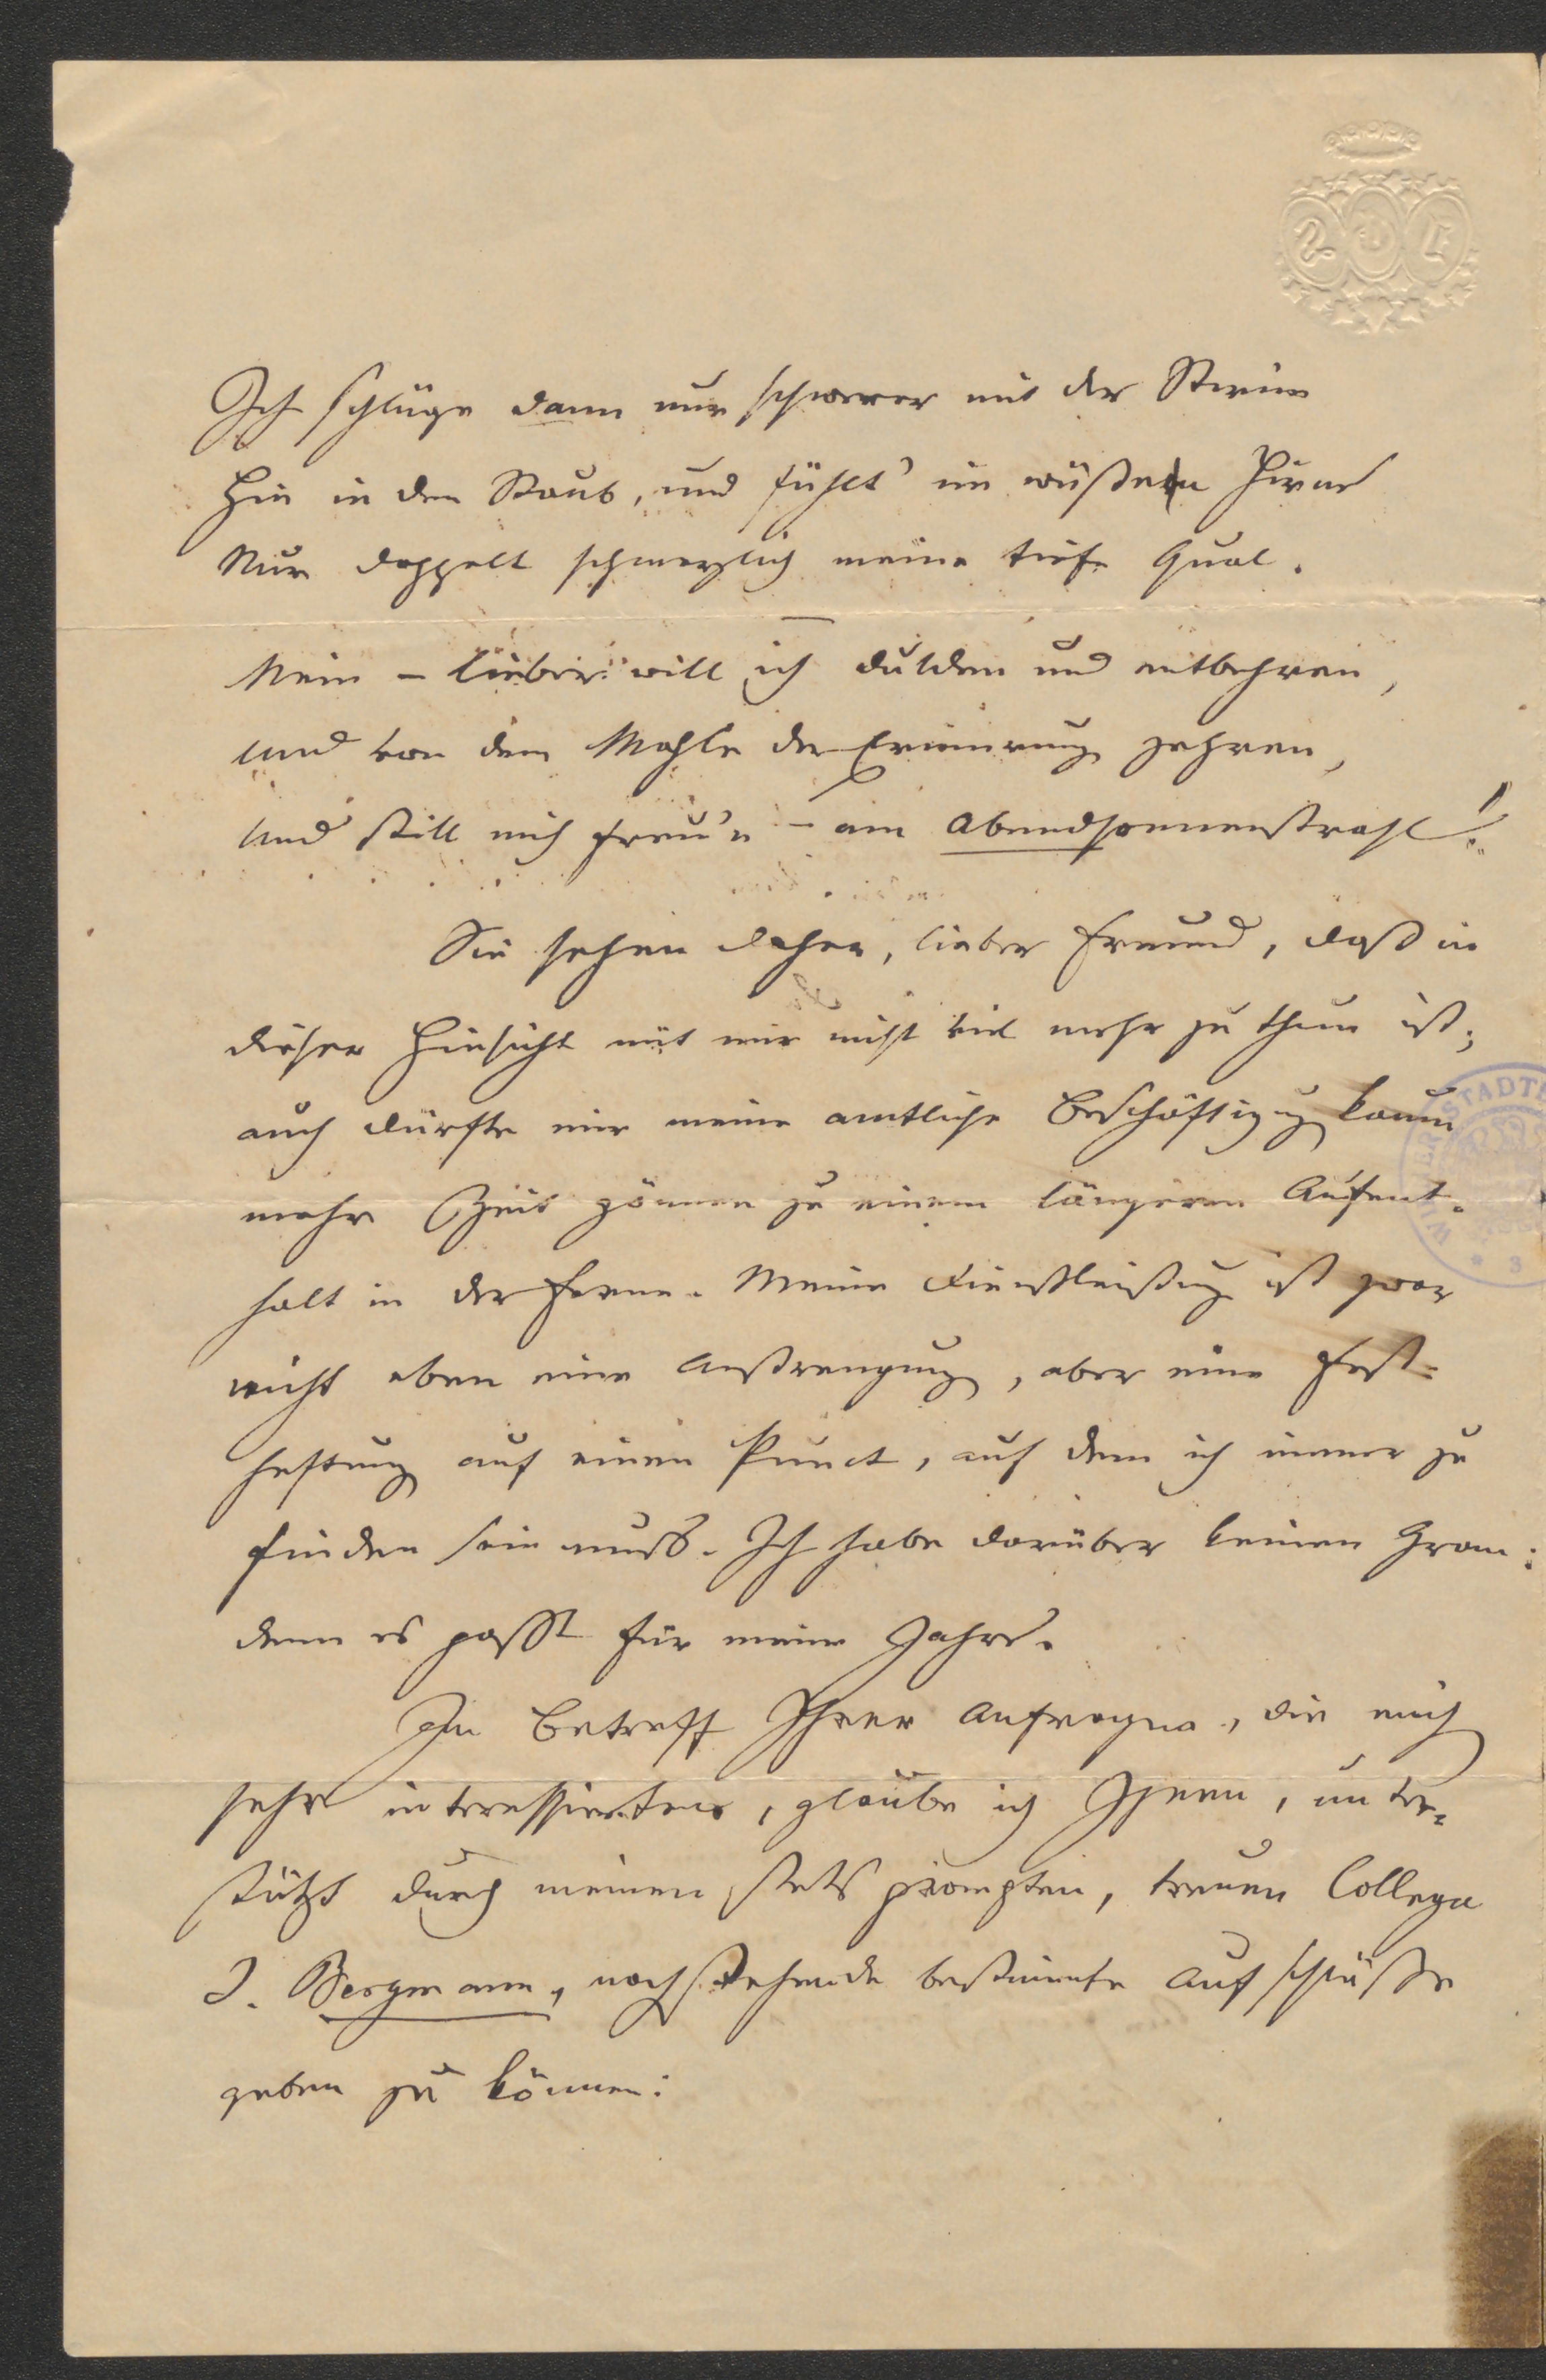 Ich schlüge dann nur schwerer mit der Stirne
Hin in den Staub, und fühlt' im wüsten Hirne
Nur doppelt schmerzlich meine tiefe Qual.
Nein – lieber will ich dulden und entbehren,
Und von dem Mahle der Erinnerung zehren,
Und still mich freu'n – am Abendsonnenstrahl!
Sie sehen daher, lieber Freund, daß in
dieser Hinsicht mit mir nicht viel mehr zu thun ist;
auch dürfte mir meine amtliche Beschäftigung kaum
mehr Zeit gönnen zu einem längeren Aufent-
halt in der Ferne. Meine Dienstleistung ist zwar
nicht eben eine Anstrengung, aber eine Fest-
heftung auf einen Punct, auf dem ich immer zu
finden sein muß. Ich habe darüber keinen Gram:
denn es passt für meine Jahre.
In Betreff Ihrer Anfragen, die mich
sehr interessierten, glaube ich Ihnen, unter-
stützt durch meinen stets prompten, treuen Collega
J. Bergmann, nachstehende bestimmte Aufschlüsse
geben zu können:
STADT
3